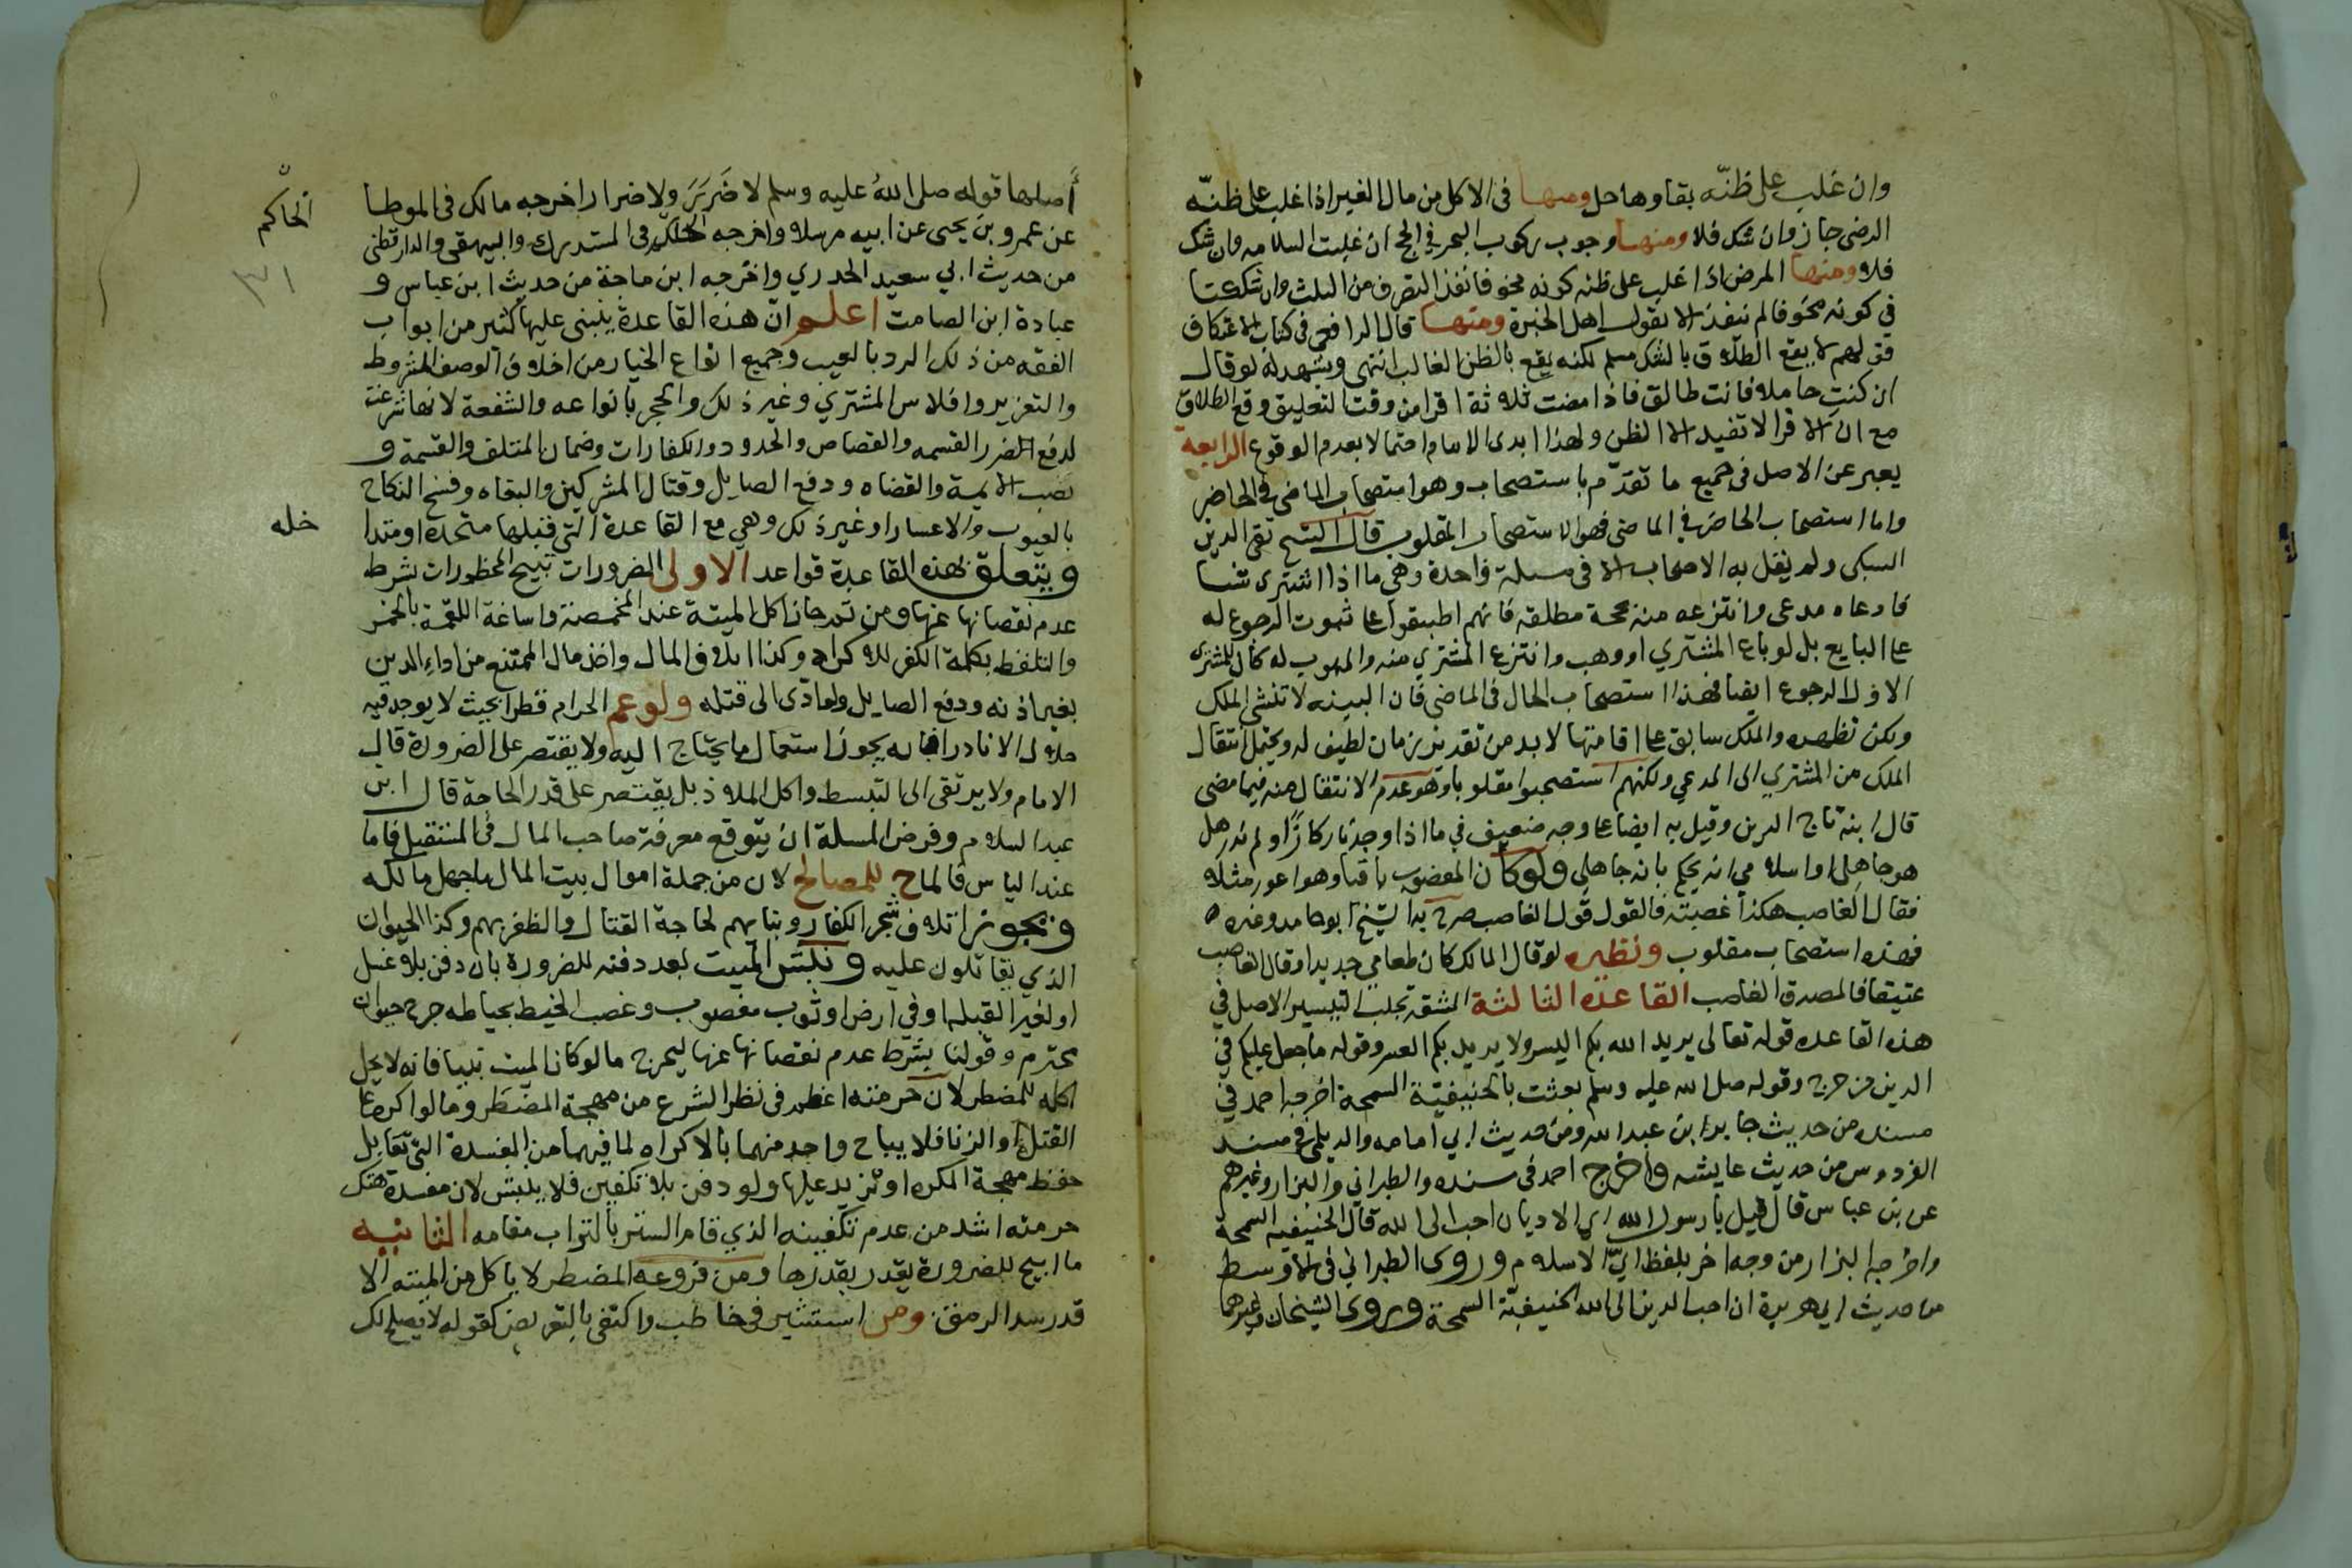 وان غلب على ظنّه بقاوها حل ومنها في الاكل من مال الغير اذا غلب على ظنّه
الرضى جاز وان شك فلا ومنها وجوب ركوب البحر في الحج ان غلبت السلامه وان شك
فلا ومنها المرض اذا غلب على ظنه كونه مخوفا نفذ التصرف من الثلث وان شككنا
في كونه مخوفا لم ننفذ الا بقول اهل الخبرة ومنها قال الرافعي في كتاب الاعتكاف
قولهم لا يقع الطلاق بالشك مسلم لكنه يقع بالظن الغالب انتهى ويشهد له لو قال
ان كنتِ حاملا فانت طالق فاذا مضت ثلاثة اقرا من وقت التعليق وقع الطلاق
مع ان الاقرا لا تفيد الا الظن ولهذا ابدى الامام احتمالا بعدم الوقوع الرابعة
يعبر عن الاصل في جميع ما تقدّم باستصحاب وهو استصحاب الماضى في الحاضر
واما استصحاب الحاضر في الماضى فهو الاستصحاب المقلوب قال الشيخ تقى الدين
السبكى ولم يقل به الاصحاب الا في مسلة واحدة وهي ما اذا اشترى شيا
فادعاه مدعى وانتزعه منه بحجة مطلقه فانهم اطبقوا على ثبوت الرجوع له
على البايع بل لو باع المشتري او وهب وانتزع المشتري منه والموهوب له كان للمشترى
الاول الرجوع ايضا فهذا استصحاب الحال في الماضى فان البينه لا تنشى الملك
ولكن تظهره والملك سابق على اقامتها لا بد من تقدير زمان لطيف له ويحتمل انتقال
الملك من المشتري الى المدعي ولكنهم استصحبوا مقلوبا وهو عدم الانتقال منه فيما مضى
قال ابنه تاج الدين وقيل به ايضا على وجه ضعيف في ما اذا وجدنا ركازًا ولم ندر هل
هو جاهلى او اسلامي انه يحكم بانه جاهلي ولو كان المغصوب باقيا وهو اعور مثلا
فقال الغاصب هكذا غصبته فالقول قول الغاصب صرح به الشيخ ابو حامد وغيره
فهذه استصحاب مقلوب ونظيره لو قال المالك كان طعامي جديدا وقال الغاصب
عتيقا فالمصدق الغاصب القاعدة الثالثة المشقه تجلب التيسير الاصل في
هذه القاعده قوله تعالى يريد الله بكم اليسر ولا يريد بكم العسر وقوله ما جعل عليكم في
الدين من حرج وقوله صلى الله عليه وسلم بعثت بالحنيفيّة السمحة اخرجه احمد في
مسنده من حديث جابر ابن عبد الله ومن حديث ابي امامه والديلمى في مسند
الفردوس من حديث عايشه واخرج احمد في مسنده والطبراني والبزار وغيرهم
عن بن عباس قال قيل يا رسول الله اي الاديان احب الى الله قال الحنيفيه السمحة
واخرجه البزار من وجه اخر بلفظ ايّ الاسلام وروى الطبراني في الاوسط
من حديث ابي هريرة ان احب الدين الى الله الحنيفيّة السمحة وروى الشيخان وغيرهما
أصلها قوله صلى اللهُ عليه وسلم لا ضَرَرَ ولا ضرار اخرجه مالك في الموطا
عن عمرو بن يحيى عن ابيه مرسلا واخرجه الحاكم في المستدرك والبيهقي والدارقطني
من حديث ابي سعيد الخدري واخرجه ابن ماجة من حديث ابن عباس و
عبادة ابن الصامت اعلم ان هذه القاعدة ينبنى عليها كثير من ابواب
الفقه من ذلك الرد بالعيب وجميع انواع الخيار من اخلاف الوصف المشروط
والتعزير وافلاس المشتري وغير ذلك والحجر بانواعه والشفعة لانها شرعت
لدفع الضرر القسمه والقصاص والحدود والكفارات وضمان المتلف والقسمة و
نصب الايمة والقضاه ودفع الصايل وقتال المشركين والبغاه وفسخ النكاح
بالعيوب والاعسار او غير ذلك وهي مع القاعدة التي قبلها متحدة او متدا
خله
ويتعلق بهذه القاعدة قواعد الاولى الضرورات تبيح المحظورات بشرط
عدم نقصانها عنها ومن ثم جاز اكل الميتة عند المخمصة واساغة اللقمة بالخمر
والتلفظ بكلمة الكفر للاكراه وكذا اتلاف المال واخذ مال الممتنع من اداء الدين
بغير اذنه ودفع الصايل ولو ادى الى قتله ولو عم الحرام قطرا بحيث لا يوجد فيه
حلال الا نادرا فانه يجوز استعمال ما يحتاج اليه ولا يقتصر على الضرورة قال
الامام ولا يرتقى الى التبسط واكل الملاذ بل يقتصر على قدر الحاجة قال ابن
عبد السلام وفرض المسلة ان يتوقع معرفة صاحب المال في المستقبل فاما
عند الياس فالماح للمصالح لان من جملة اموال بيت المال ما جهل مالكه
ويجوز اتلاف شجر الكفار وبنايهم لحاجة القتال والظفر بهم وكذا الحيوان
الذي يقاتلون عليه ونبش الميت بعد دفنه للضرورة بان دفن بلا غسل
او لغير القبله او في ارض او ثوب مغصوب وغصب الخيط بخياطه جرح حيوان
محترم وقولنا بشرط عدم نقصانها عنها ليخرج ما لو كان الميت نبيا فانه لا يحل
اكله للمضطر لان حرمته اعظم في نظر الشرع من مهجة المضطر وما لو اكره على
القتل او الزنا فلا يباح واحد منهما بالاكراه لما فيهما من المفسدة التي تقابل
حفظ مهجة المكره او تزيد عليها ولو دفن بلا تكفين فلا ينبش لان مفسدة هتك
حرمته اشد من عدم تكفينه الذي قام الستر بالتراب مقامه الثانيه
ما ابيح للضرورة يقدر بقدرها ومن فروعه المضطر لا ياكل من الميته الا
قدر سد الرمق ومن استشير في خاطب واكتفى بالتعريض كقوله لا يصلح لك
الحاكم
٣١